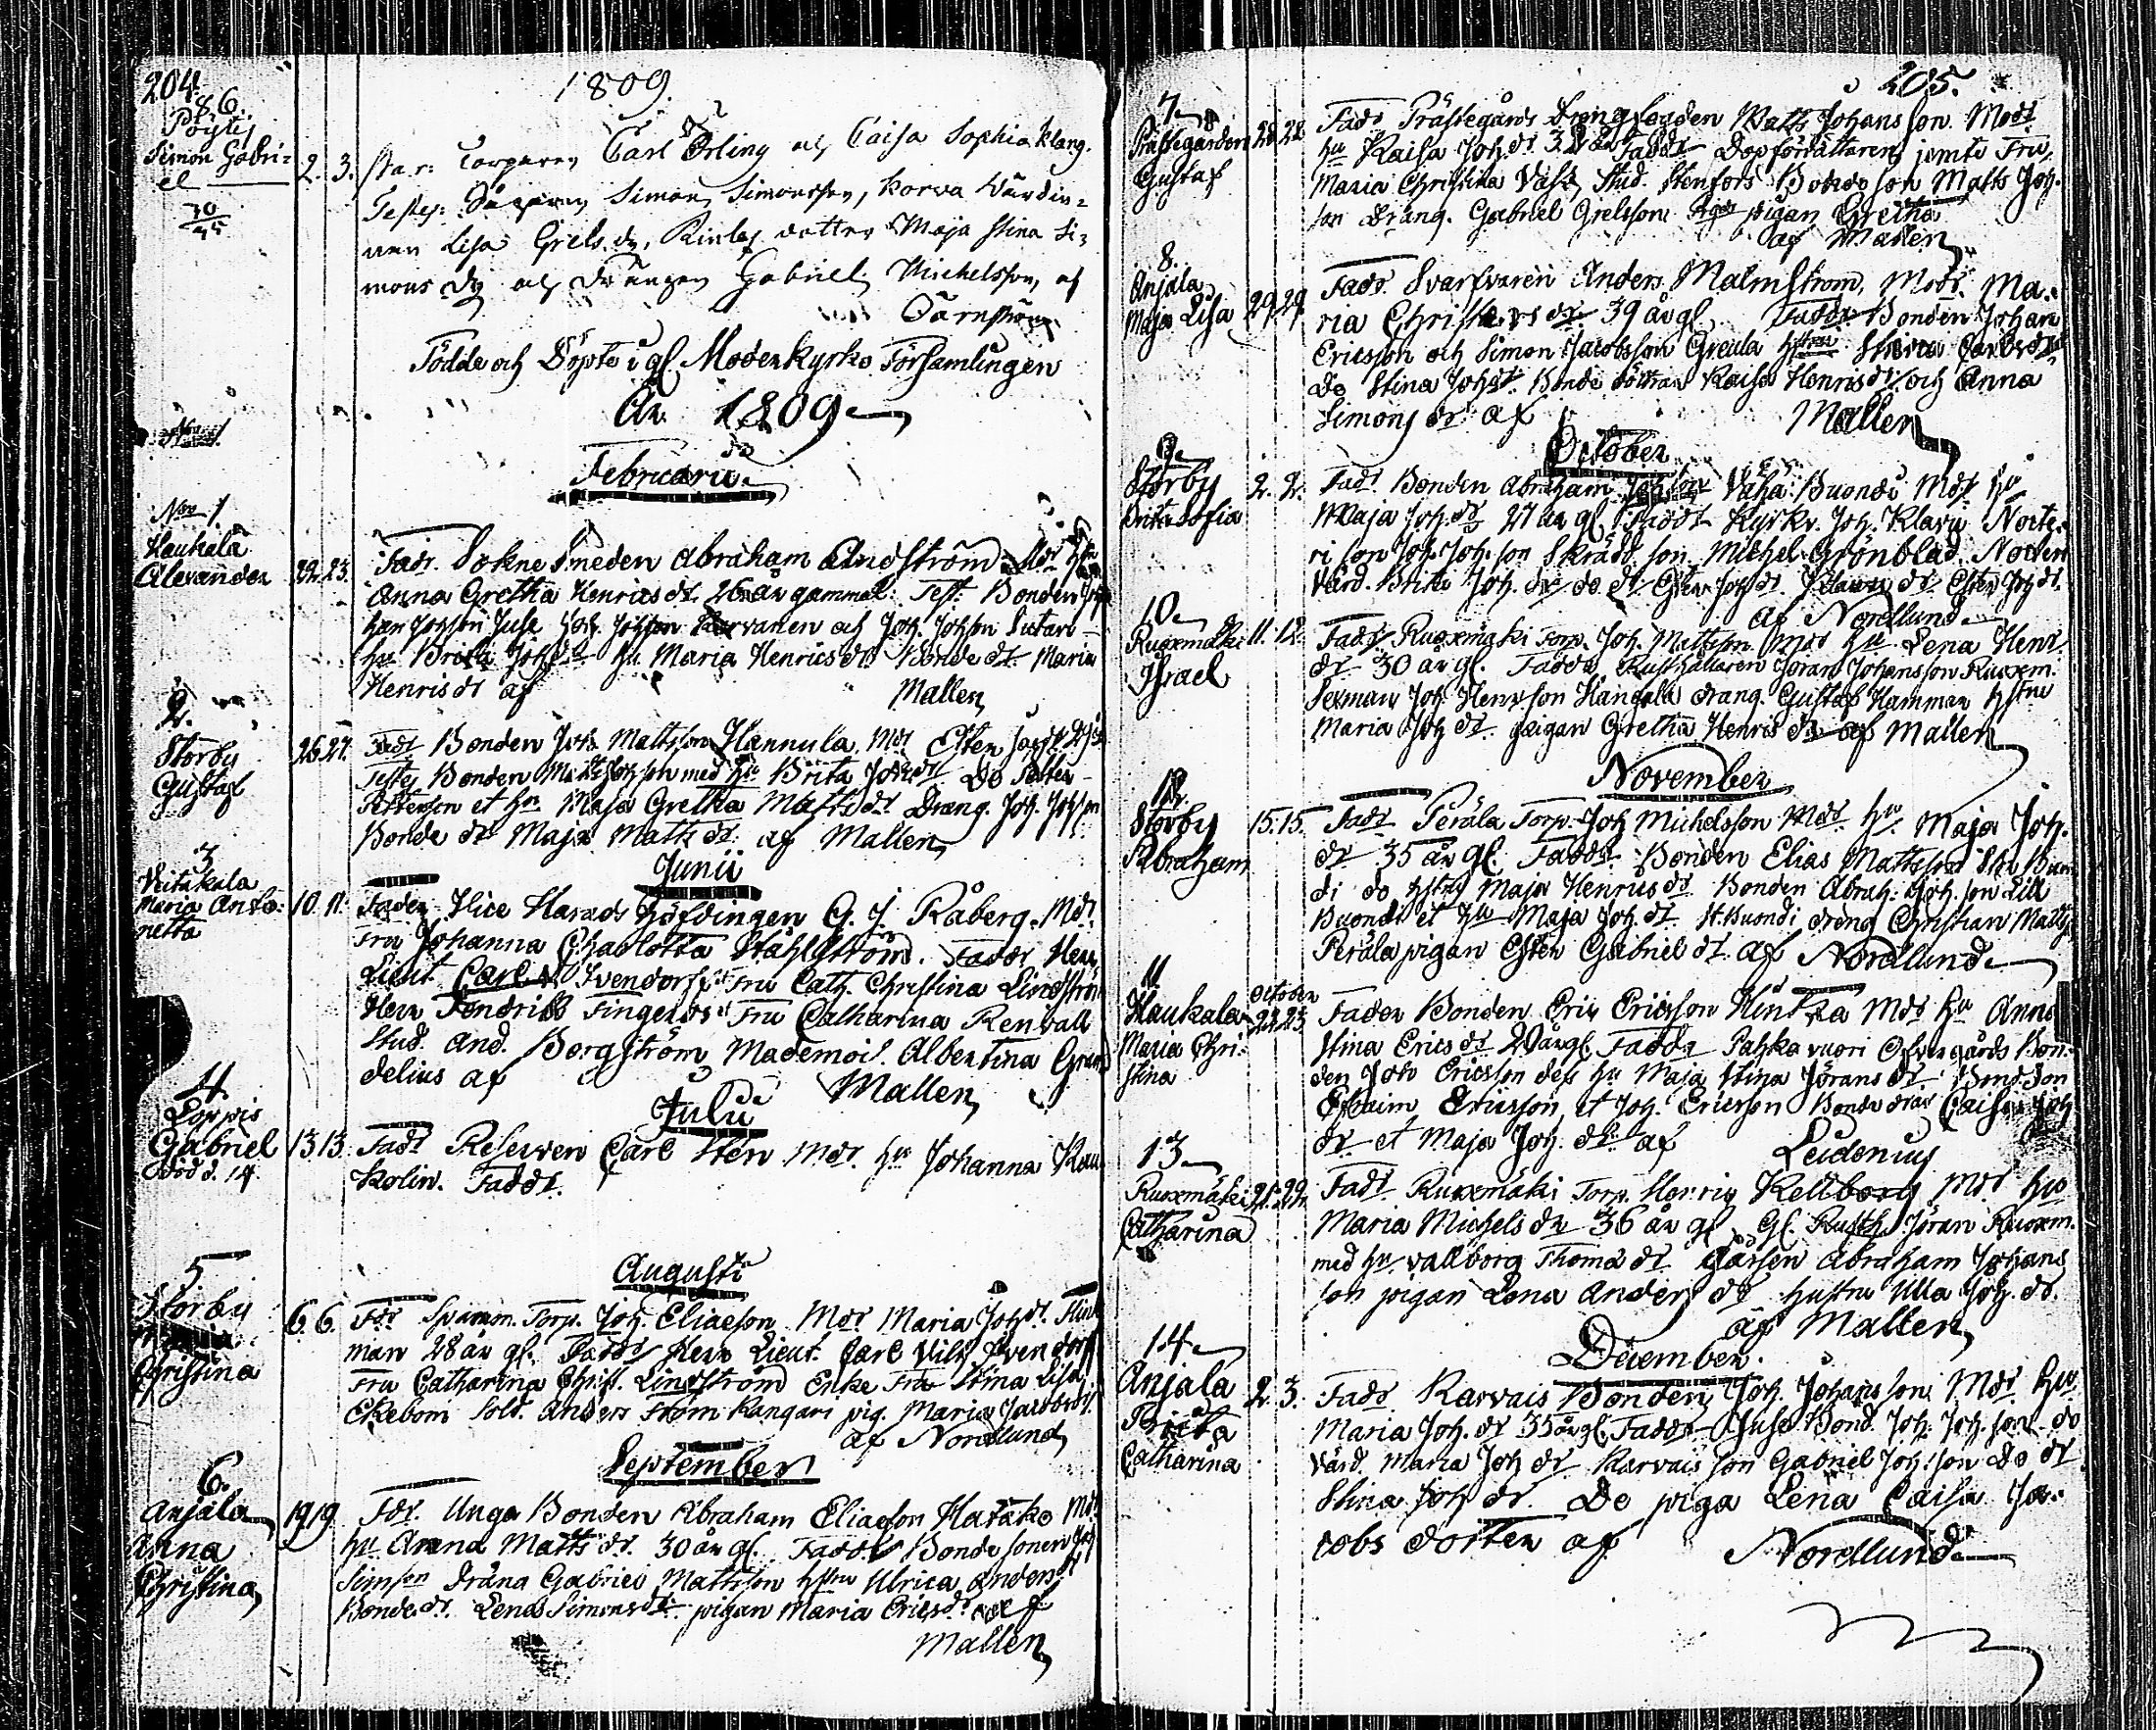 204.
1809.
86.
Pöytis
Simon Gabri=
el
2. 3. Far: Torparen Carl Örling och Caisa Sophia Klang.
Testes: Simon Simonsson, Korva Värdin=
nan Lisa Griels dr, dotter Maja Stina Si=
mons dr och Drängen Gabriel Michelsson, af
Tärnström
Födde och Döpte i gl. Moderkyrko Församlingen
År 1809
Februarii
Nro 1
Haukala
Alexander
22. 23. Fadr. Sokne Smeden Abraham Lindström Mdr
Anna Gretha Henrics dr. 26 år gammal. Test. Bonden
Johsson Juse Joh. Johsson Karvanen och Joh. Johsson
hu Brita Joh dr hu. Maria Henrics dr Bonde dr. Maria
Henrics dr af Mallen
2.
Storby
Gustaf
26 27. Fadr Bonden Joh. Mattsson Hannula. Mdr Ester
Testes Bonden Matts Johsson med hu Brita Joh dr Do Petter
Pettersson et hu Maja Gretha Matts dr Dräng. Joh. Johsson
Bonde dr Maja Matts dr. af Mallen
Junii
3
Veitakala
Maria Anto=
netta
10 11. Fader Vice Harads höfdingen G. J. Råberg. Mdr.
Fru Johanna Charlotta Ståhlström. Faddr Herr
Lieut. Carl W. Svendorff Fru Cath. Christina Lindström
Herr Fendrik Fingerroos Fru Catharina Renvall
Stud. And. Borgström Mademois. Albertina
delius af Mallen
Julii
4.
Loppis
Gabriel
död d. 14.
13 13. Fadr Reserven Carl Sten Mdr. hu Johanna
kolin. Faddr.
Augusti
5
Storby
Christina
6. 6. Fdr Spinn. Torp. Joh. Eliaeson Mdr Maria Joh dr.
man 28 år gl. Faddr Herr Lieut. Carl Vilh. Svendorff
Fru Catharina Christ. Lindström Enke Fru Stina Lisa
Ekebom Sold. Anders Ström Kangari pig. Maria Jacobs dr.
af Nordlund
September
6.
Anjala
Anna
Christina
19 19 Fdr. Unga Bonden Abraham Eliaeson Harako Mdr
hu Anna Matts dr. 30 år gl. Faddr Bonde sonen Joh
Simson dräng Gabriel Mattsson hstru Ulrica Anders dr
Bonde dr. Lena Simons dr. pigan Maria Erics dr af
Mallen
205.
7
Prästegården
Gustaf
28 28 Fadr Prästegårds Drengfogden Matts Johansson. Modr
hu Kaisa Joh. dr. 32 år Faddr Dopförrättaren jemte Fru
Maria Christina Stud. Stenfors Bondeson Matts Joh.
son dräng. Gabriel Grelsson pigan Gretha
af Mallen
8.
Anjala
Maja Lisa
29 29 Fadr. Svarfvaren Anders Malmström, Modr. Ma=
ria Christers dr. 39 år gl. Faddr Bonden Johan
Ericsson och Simon Jacobsson Greula hstru
do Stina Joh dr. Bonde döttrar Kaisa Henris dr. och Anna
Simons dr. af Mallen
October
9
Storby
Sofia
2. 2. Fadr. Bonden Abraham Johson Vähä Buondi Mdr hu
Maja Joh. dr 27 år gl. Faddr Kyrkv. Joh. Klavu Norte=
ri son Joh. Joh. son Skrädd. son Michel Grönblad
Värd. Brita Joh. dr do dr Ester Joh dr. dr Ester Joh dr.
af Nordlund
10
Ruoxmäki
Israel
11. 12. Fadr Ruoxmäki Torp. Joh. Mattsson Mdr hu Lena Henr.
dr 30 år gl. Faddr Rusthållaren Jöran Johansson Ruoxm.
Sexman Joh. Henrsson Hangala dräng. Gustaf Hamman hstru
Maria Joh dr. pigan Gretha Henris dr af Mallen
November
12.
Storby
Abraham
15. 15. Fadr Perälä Torp. Joh Michelsson Mdr. hu. Maja Joh.
dr 35 år gl. Faddr. Bonden Elias Mattsson St Buon
di do hstru Maja Henris dr. Bonden Abrah. Joh. son Lill
Buondi et hu Maja Joh. dr St. Buondi dreng Christian Matts
Perälä pigan Ester Gabriel dr. af Nordlund
11
Haukala
Maria Chri=
stina
October
23 23 Fader Bonden Eric Ericsson Hintza Mdr hu Anna
Stina Erics dr 20 år gl. Faddr Pahka vuori Öfvergårds Bon=
den Joh Ericsson dess hu Maja Stina Jörans dr Bond. Son
Efraim Ericsson, et Joh. Ericsson Bonde dr Caisa Joh
dr. et Maja Joh. dr. af Leidenius
13
Ruoxmäki
Catharina
21. 22. Fadr. Ruoxmäki Torp. Henric Kellborg Mdr hu
Maria Michels dr 36 år gl. gl. Rusth. Jöran Ruoxm.
med hu vallborg Thoma dr Abraham Johans
son pigan Lena Anders dr hustru Ulla Joh. dr.
af Mallen
December
14
Anjala
Brita
Catharina
2. 3. Fadr Karvais Bonden Joh. Johansson Mdr hu
Maria Joh. dr 35 år gl. Faddr Juse Bond. Joh. Joh. son do
värd. Maria Joh dr Karvais son Gabriel Joh. son do dr
Stina Joh dr. Do piga Lena Caisa Ja=
cobs dotter af Nordlund